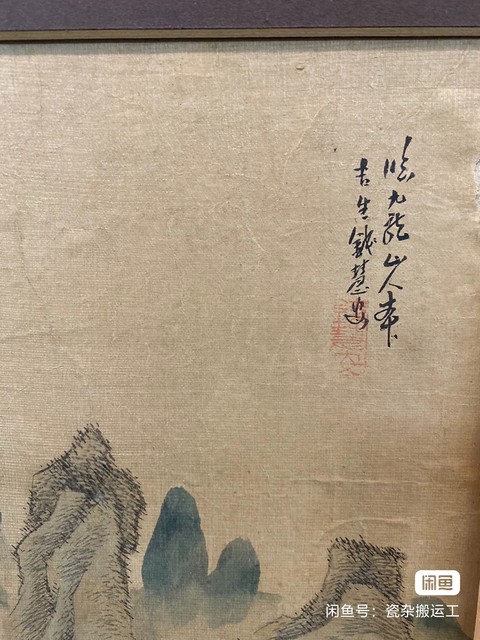 临九龍山人本
吉生錢慧安
闲鱼
闲鱼号：瓷杂搬运工